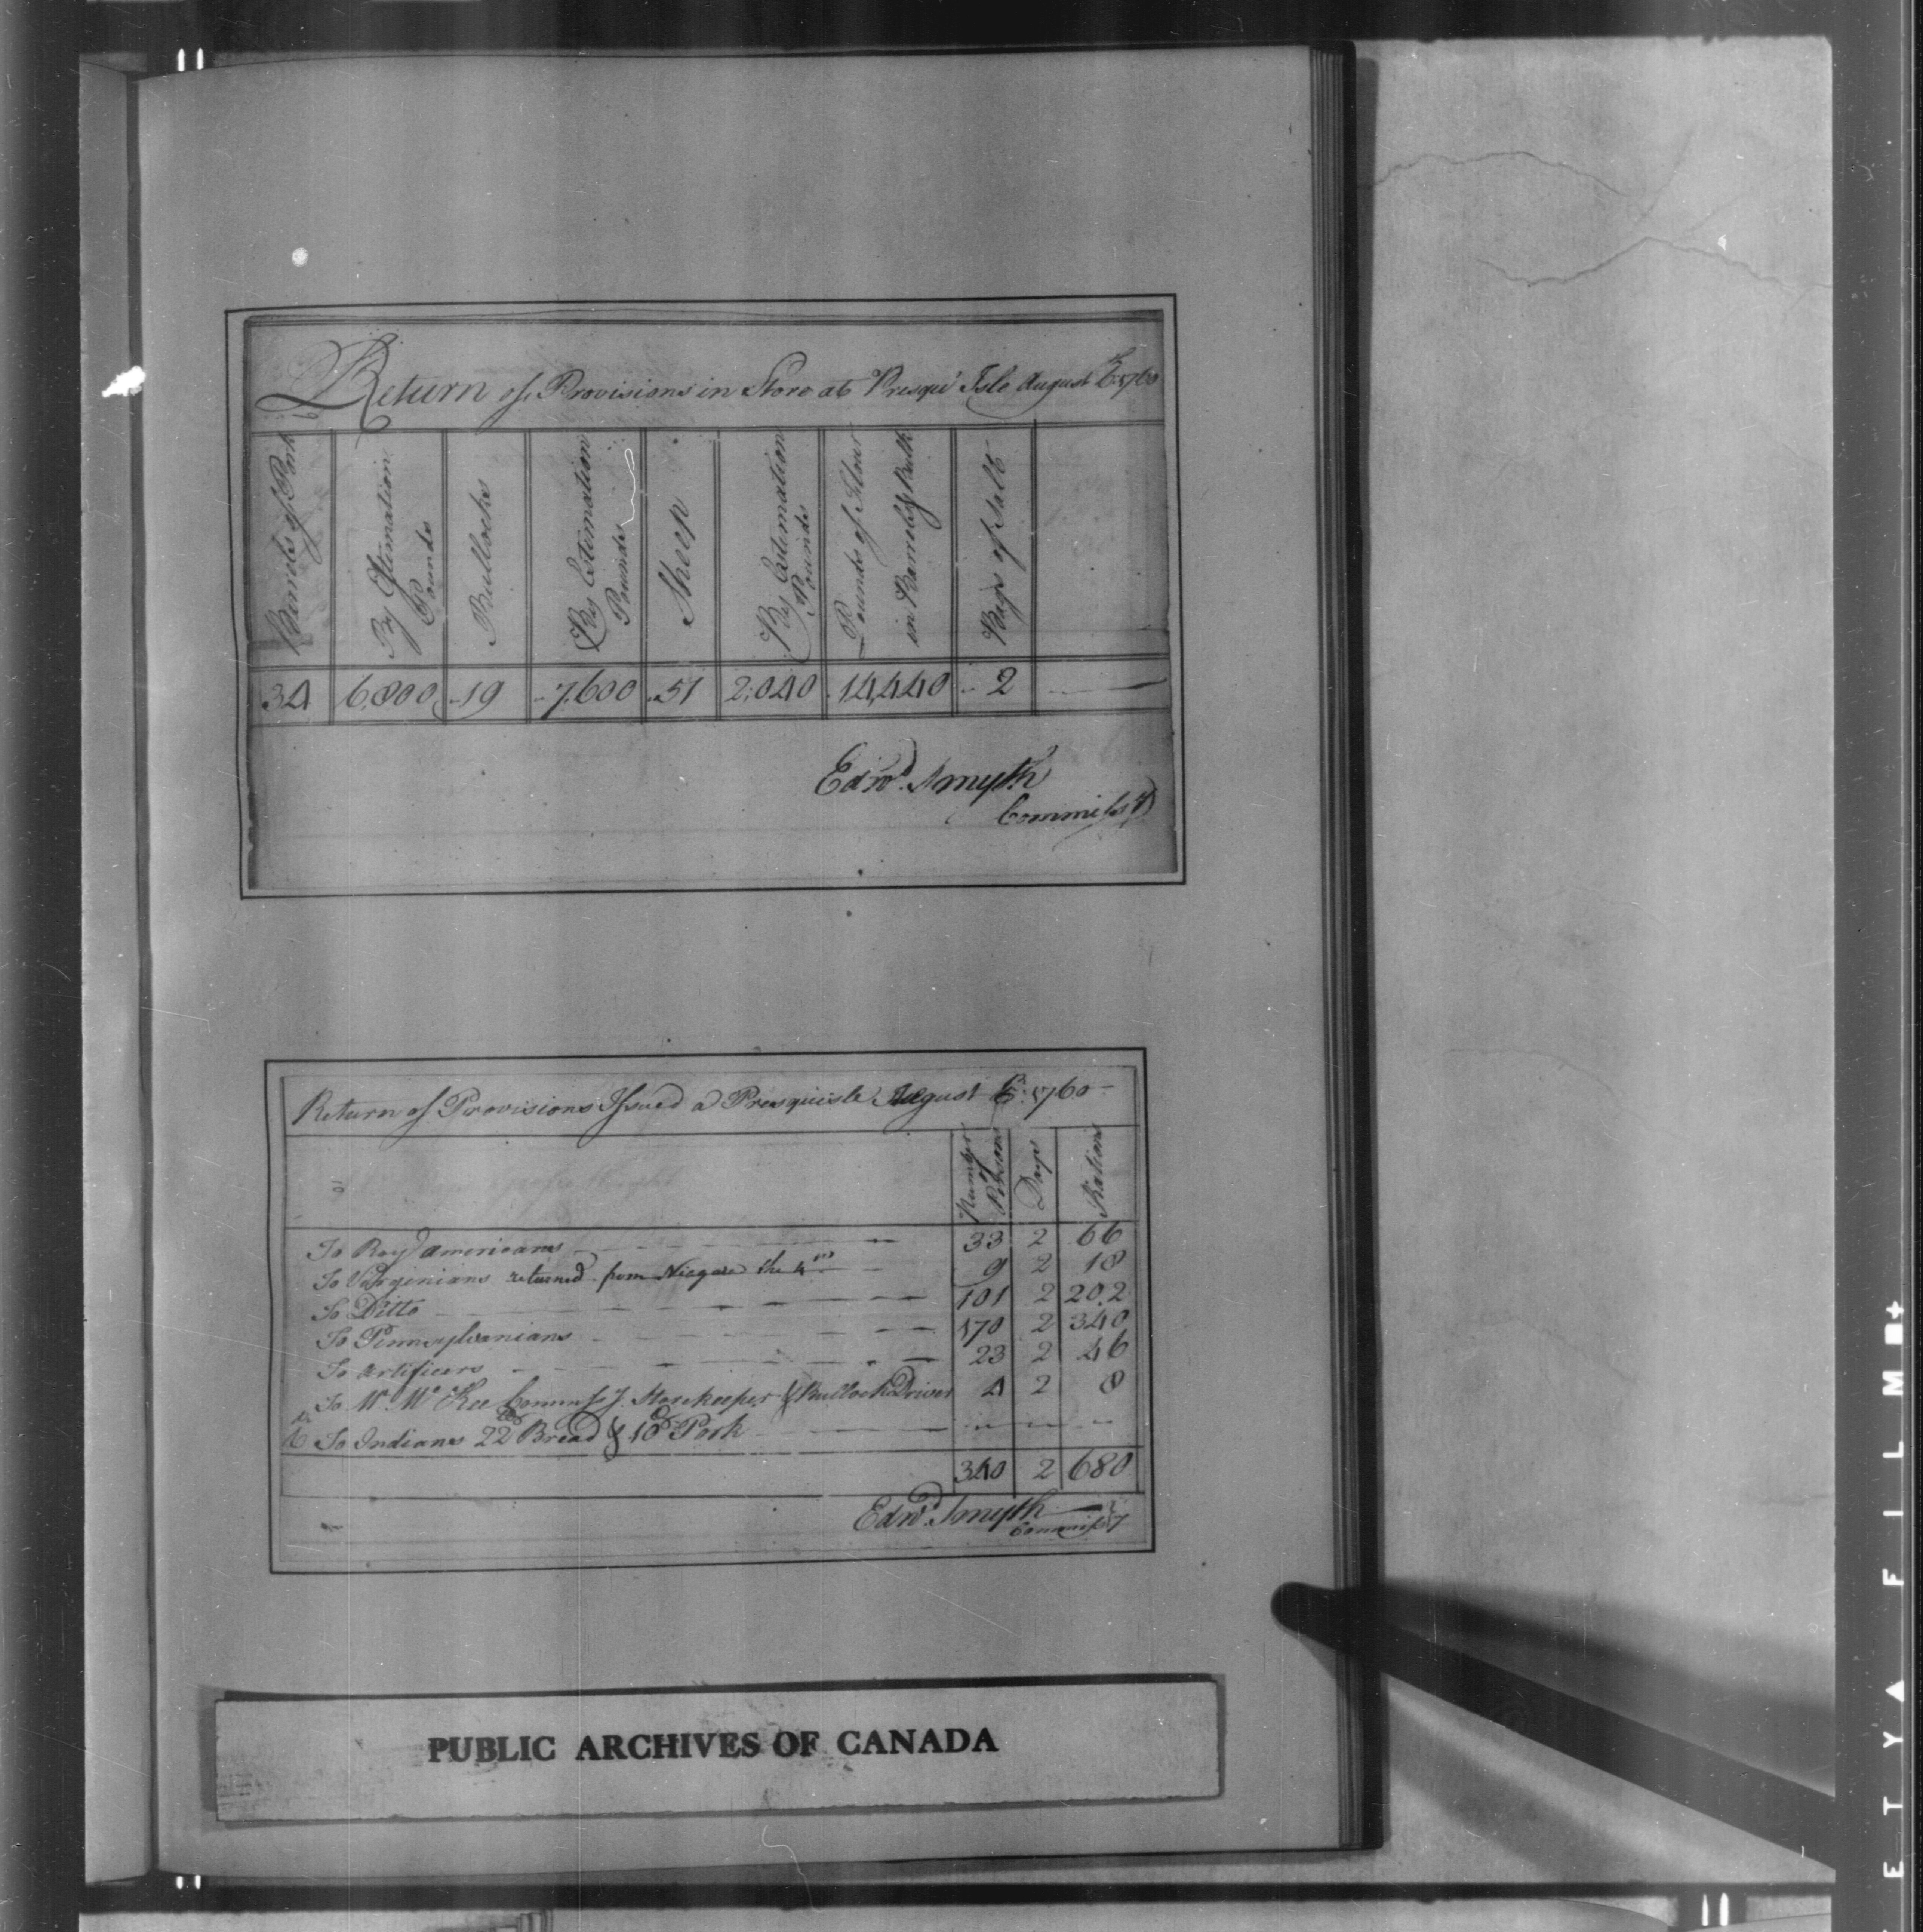 Return of Provisions in Store at Presqu' Isle August 6th 1760
Barrels of Pork
By Estimation Pounds
Bullocks
By Estimation Pounds
Sheep
By Estimation Pounds
Pounds of Flour in Barrels & Bulk
Bags of Salt
34 6,800 19 7,600 51 2,040 14,440 2
Edwd. Smyth
Commissy
Return of Provisions Issued a Presquisle August 6th: 1760
Number of Persons Days Rations
To Royl americans 33 2 66
To Virginians returned from Niagara the 4th 9 2 18
To Ditto 101 2 202
To Pennsylvanians 170 2 340
To artificers 23 2 46
To Mr McKee Commissy. Storekeeper & Bullock Driver 4 2 8
To Indians 22 lb Bread & 18 lb Pork
340 2 680
Edwd. Smyth
Commissy
PUBLIC ARCHIVES OF CANADA
E T Y ▲ F I L M ■+